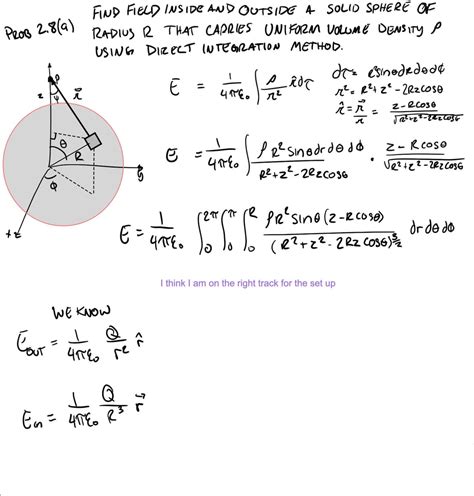 PROB 2.8(a)
FIND FIELD INSIDE AND OUTSIDE A SOLID SPHERE OF
RADIUS R THAT CARRIES UNIFORM VOLUME DENSITY ρ
USING DIRECT INTEGRATION METHOD.
E = 1/4πε₀ ∫ ρ/r² r̂ dτ
dτ = R²sinθdRdθdϕ
r² = R²+z²-2Rzcosθ
r̂ = r⃗/r = z-Rcosθ/√R²+z²-2Rzcosθ
E = 1/4πε₀ ∫ ρR²sinθdrdθdϕ/R²+z²-2Rzcosθ · z-Rcosθ/√R²+z²-2Rzcosθ
E = 1/4πε₀ ∫₀^2π ∫₀^π ∫₀^R ρR²sinθ(z-Rcosθ)/(R²+z²-2Rzcosθ)^3/2 drdθdϕ
I think I am on the right track for the set up
WE KNOW
E_OUT = 1/4πε₀ Q/r² r̂
E_in = 1/4πε₀ Q/R³ r⃗
P
z
ψ
r⃗
θ
R
y
ϕ
+x